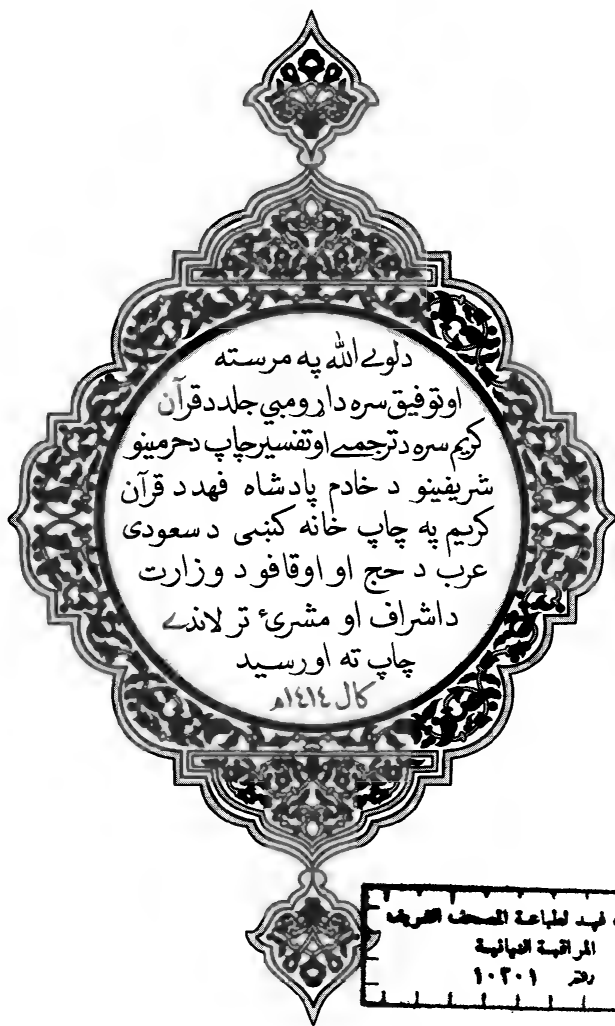 دلوے الله په مرسته
اوتوفیق سره دا ړومبي جلد د قرآن
کریم سره د ترجمے او تفسیر چاپ د حرمینو
شریفینو د خادم پادشاه فهد د قرآن
کریم په چاپ خانه کښی د سعودی
عرب د حج او اوقافو د وزارت
د اشراف او مشرئ تر لاندے
چاپ ته اورسید
کال ١٤١٤ﻫ
فهد لطباعة المصحف الشريف
المراقبة النهائية
١٠٢٠١